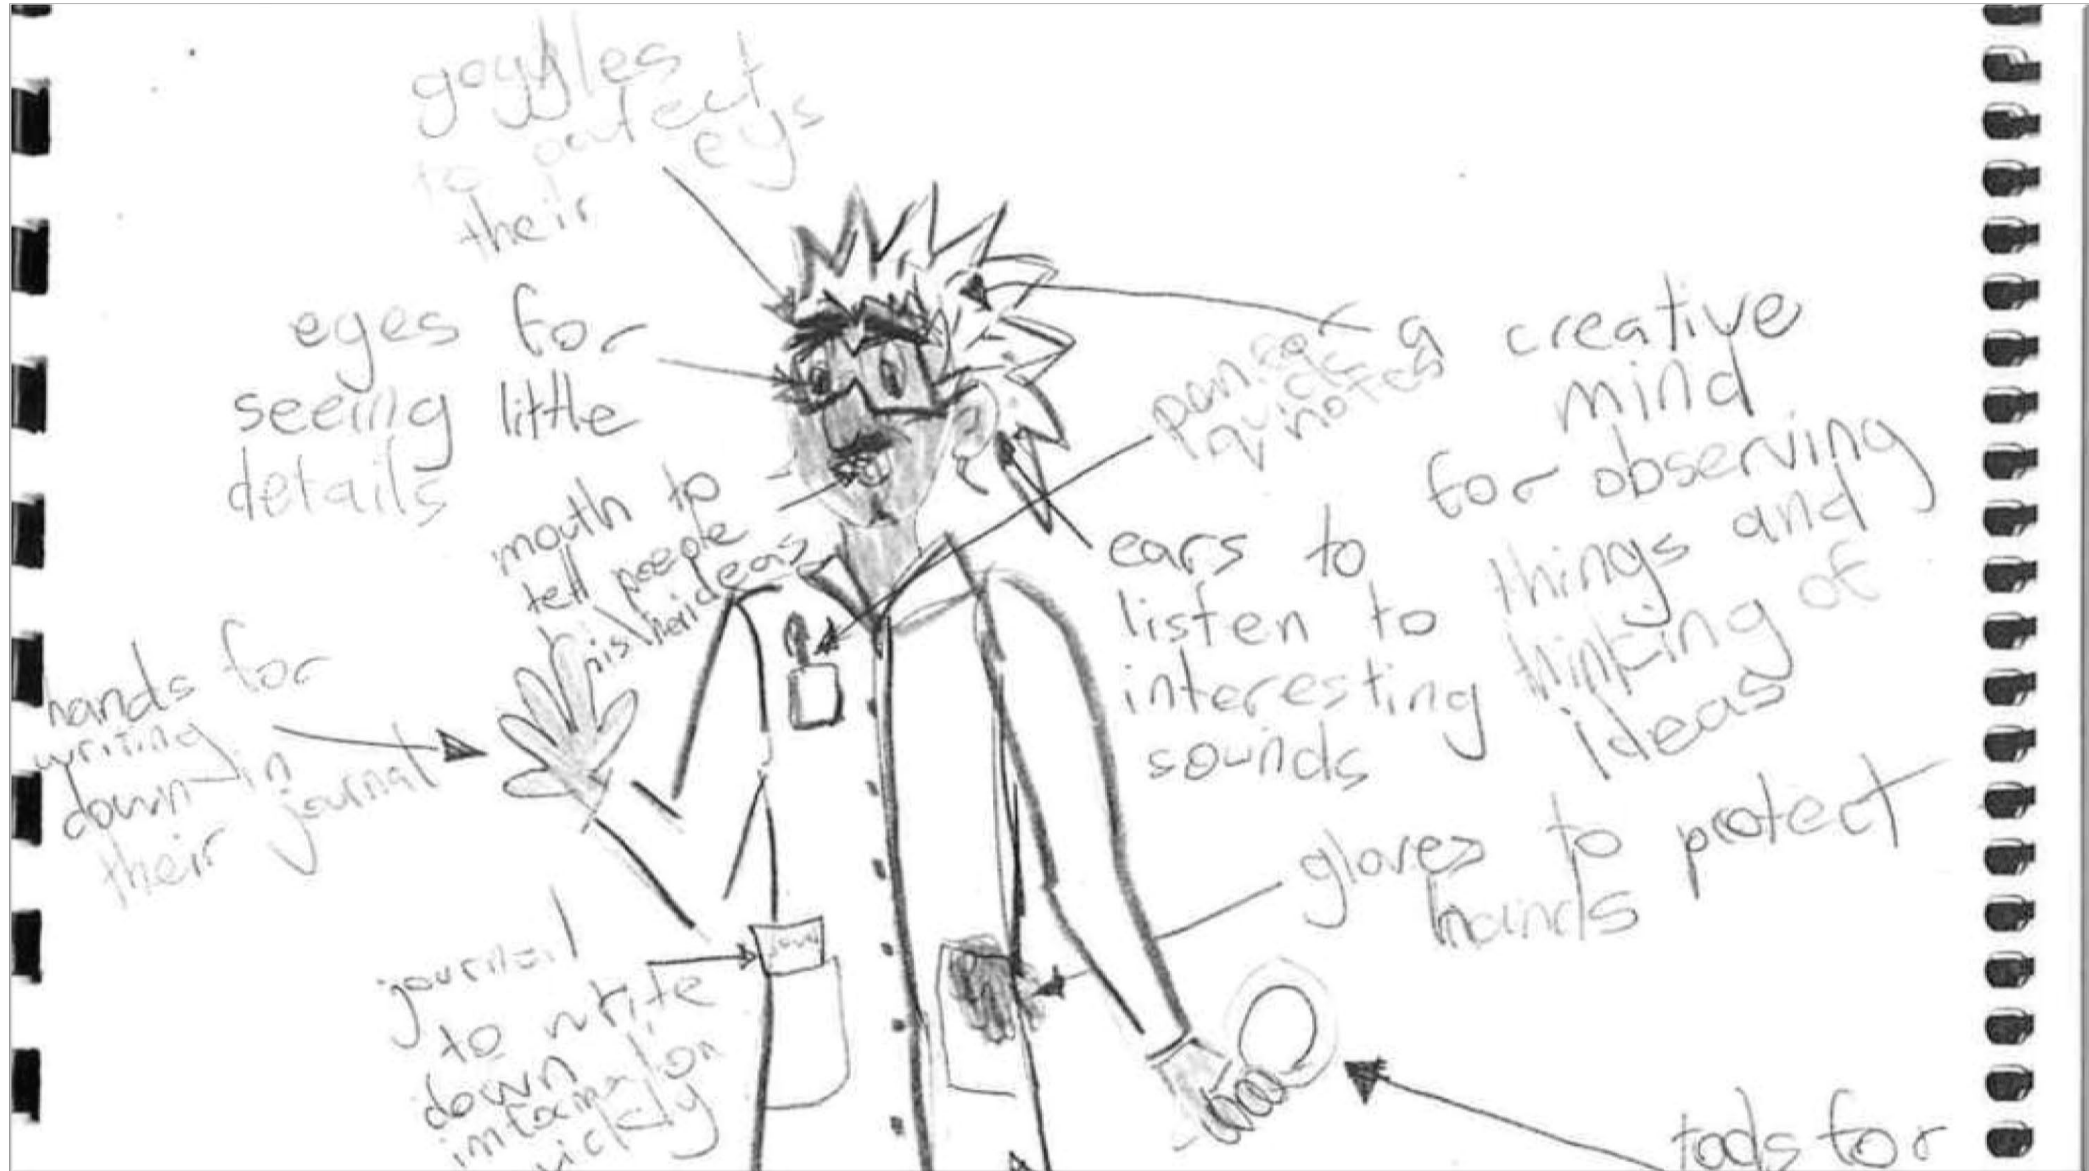 goggles
to
their eys
eyes for
seeing little
details
mouth to
tell people
his/heir ideas
hands for
writing
down in
their journal
journal
to write
down
information
a creative
mind
for observing
things and
thinking of
ideas
quick
notes
ears to
listen to
interesting
sounds
gloves to protect
hands
tools for